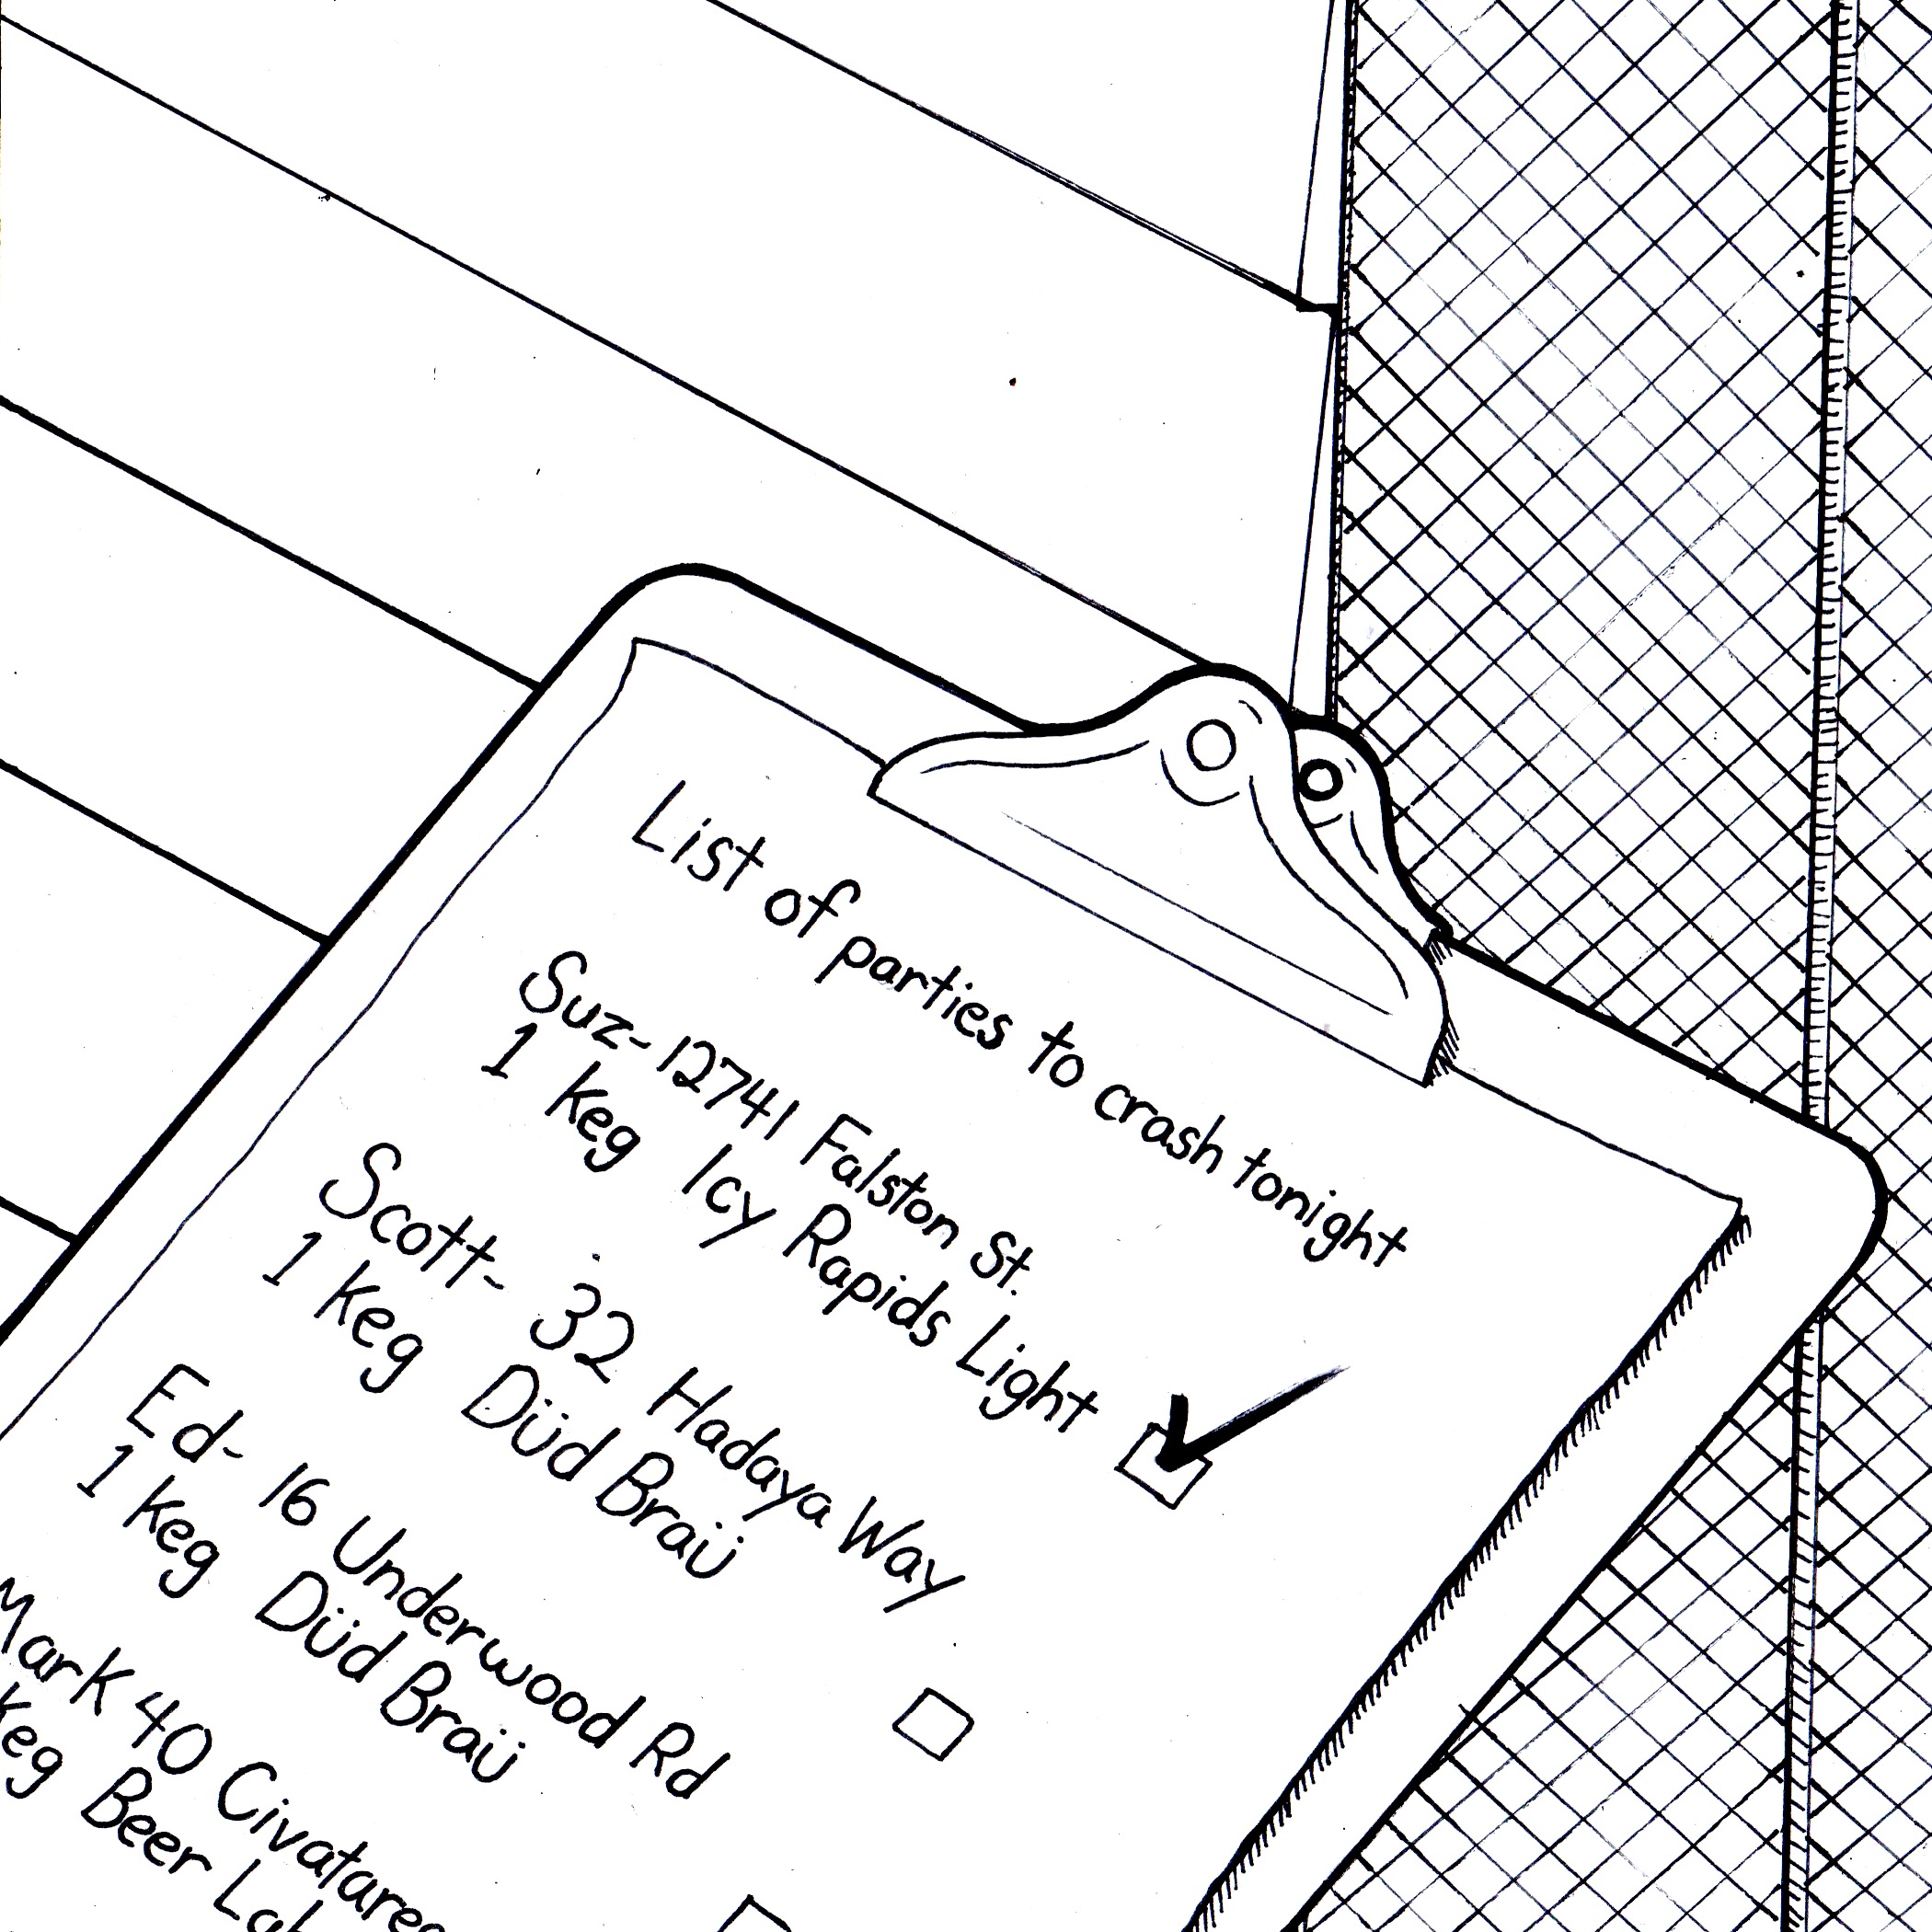 List of parties to crash tonight
Suz-12741 Falston St.
1 Keg Icy Rapids Light
Scott- 32 Hadaya Way
1 Keg Düd Braü
Ed- 16 Underwood Rd
1 Keg Düd Braü
Mark 40
Keg Beer